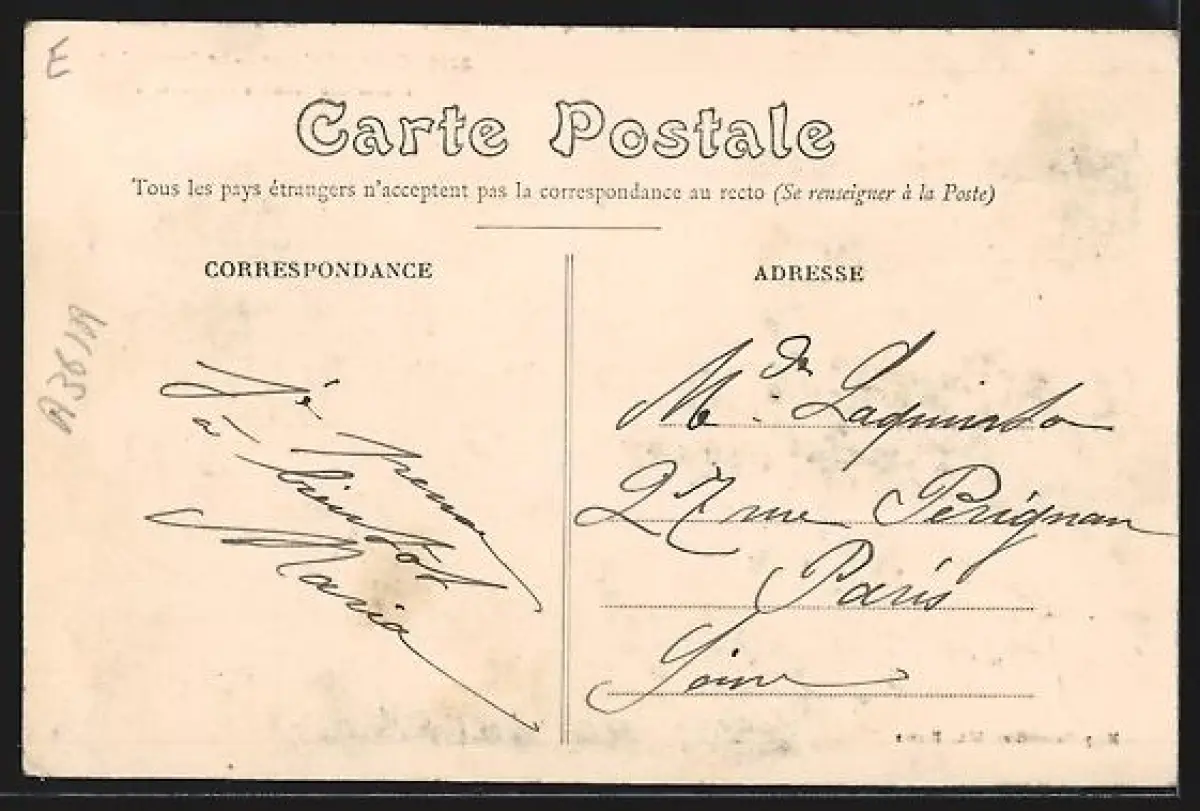 E
Carte Postale
Tous les pays étrangers n'acceptent pas la correspondance au recto (Se renseigner à la Poste)
CORRESPONDANCE
ADRESSE
A361A
à
bientôt
Maria
M
27 rue Pérignan
Paris
Seine